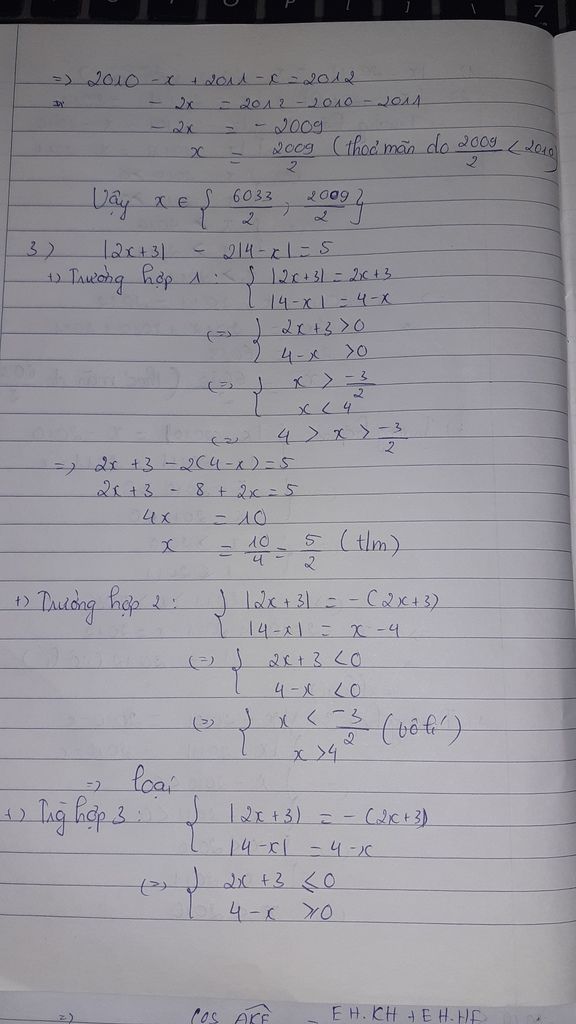 => 2010 - x + 2011 - x = 2012
- 2x = 2012 - 2010 - 2011
- 2x = - 2009
x = 2009/2 (thoả mãn do 2009/2 < 2010)
Vậy x ∈ { 6033/2 ; 2009/2 }
3) |2x+3| - 2|4-x| = 5
+) Trường hợp 1: { |2x+3| = 2x+3
|4-x| = 4-x
(=) { 2x+3 >0
4-x >0
(=) { x > -3/2
x < 4
(=) 4 > x > -3/2
=> 2x + 3 - 2(4-x) = 5
2x + 3 - 8 + 2x = 5
4x = 10
x = 10/4 = 5/2 (t/m)
+) Trường hợp 2: { |2x+3| = -(2x+3)
|4-x| = x-4
(=) { 2x+3 <0
4-x <0
(=) { x < -3/2 (vô lí)
x >4
=> loại
+) Trg hợp 3: { |2x+3| = -(2x+3)
|4-x| = 4-x
(=) { 2x+3 ≤0
4-x ≥0
=) cos AKE = EH.KH + EH.HF